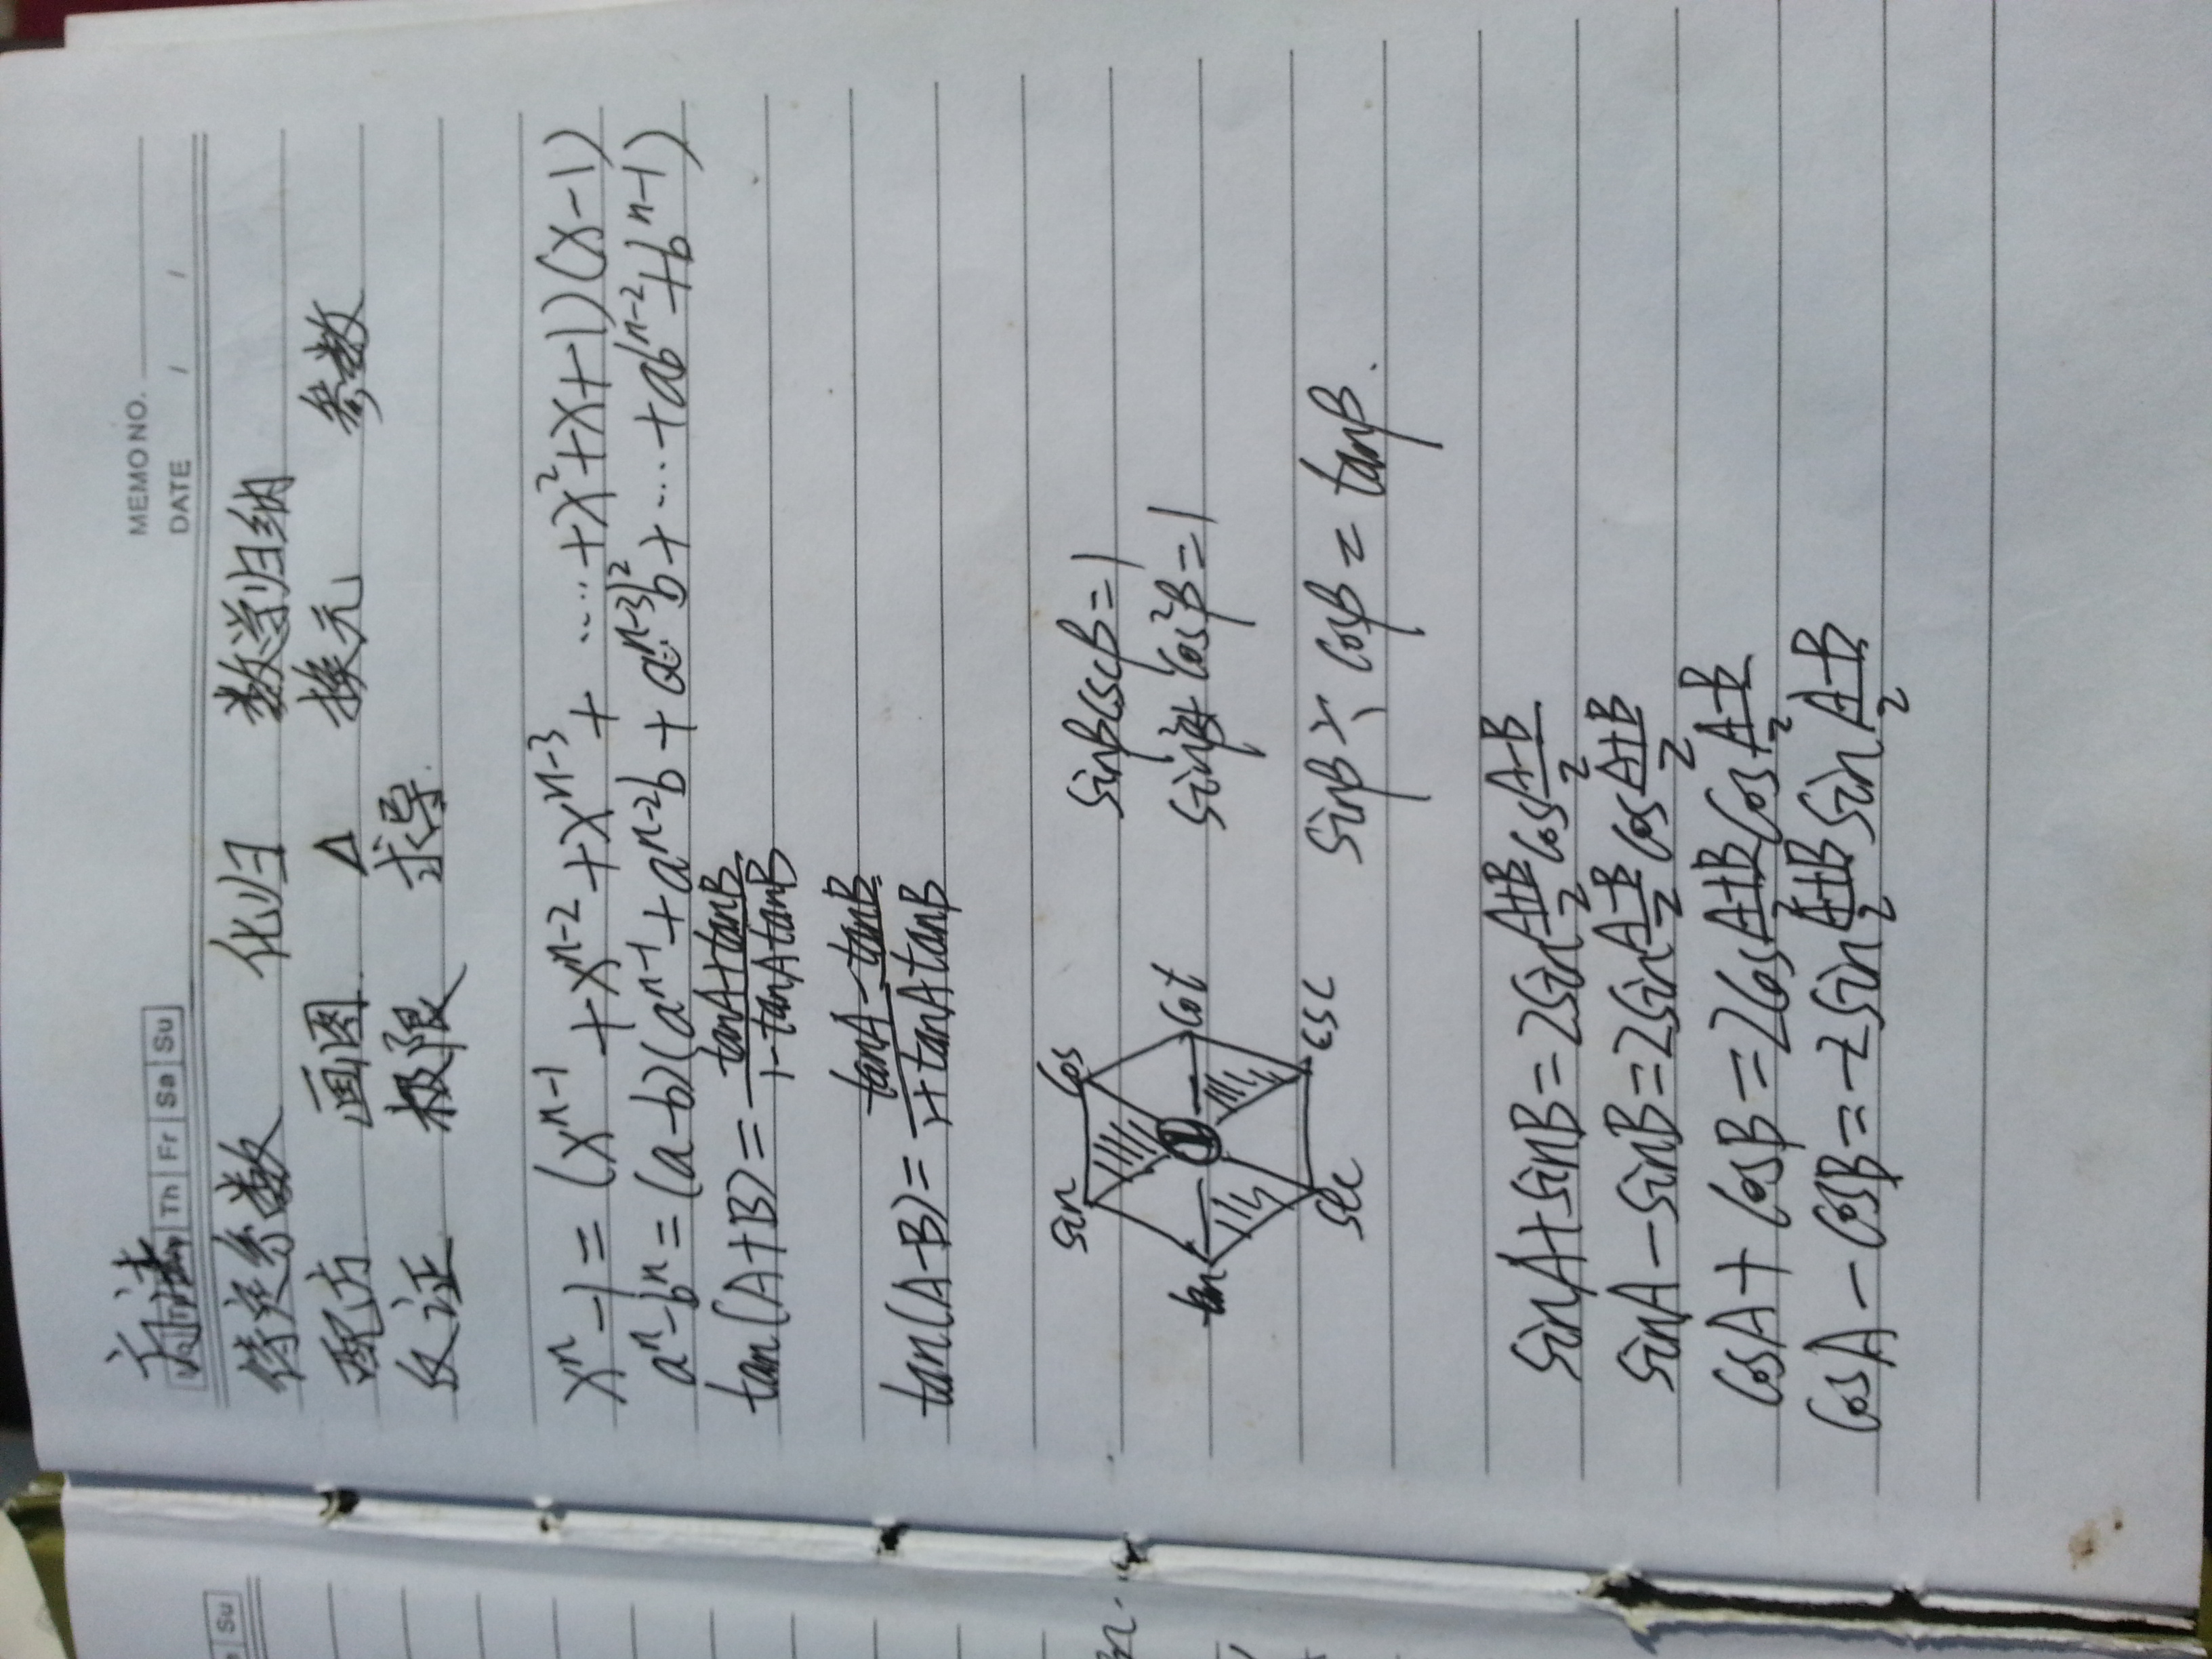 方法
Th Fr Sa Su
MEMO NO.
DATE / /
Su
待定系数 化归 数学归纳
配方 画图 Δ 换元 参数
反证 极限 求导.
xⁿ-1=(xⁿ⁻¹+xⁿ⁻²+xⁿ⁻³+……+x²+x+1)(x-1)
aⁿ-bⁿ=(a-b)(aⁿ⁻¹+aⁿ⁻²b+aⁿ⁻³b²+…+abⁿ⁻²+bⁿ⁻¹)
tan(A+B)=(tanA+tanB)/(1-tanAtanB)
tan(A-B)=(tanA-tanB)/(1+tanAtanB)
sin cos
tan 1 cot
sec csc
sinβcscβ=1
sin²β+cos²β=1
sinβ÷cosβ=tanβ.
sinA+sinB=2sin(A+B)/2cos(A-B)/2
sinA-sinB=2sin(A-B)/2cos(A+B)/2
cosA+cosB=2cos(A+B)/2cos(A-B)/2
cosA-cosB=-2sin(A+B)/2sin(A-B)/2